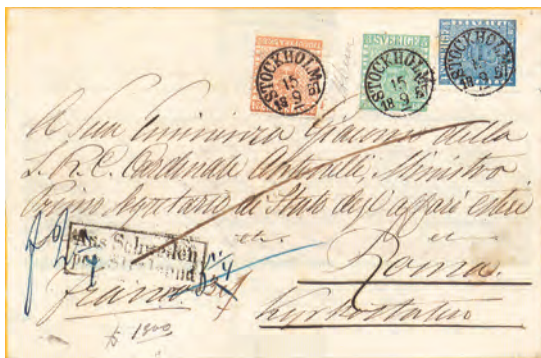 SVERIGE
STOCKHOLM
15
9
STOCKHOLM
15
9
STOCKHOLM
15
9
A Sua Eminenza Giacomo della
S. R. C. Cardinale Antonelli, Ministro
Primo Segretario di Stato degl'affari esteri
Aus Schweden
per Stralsund
Roma.
franco
Kyrkostaten